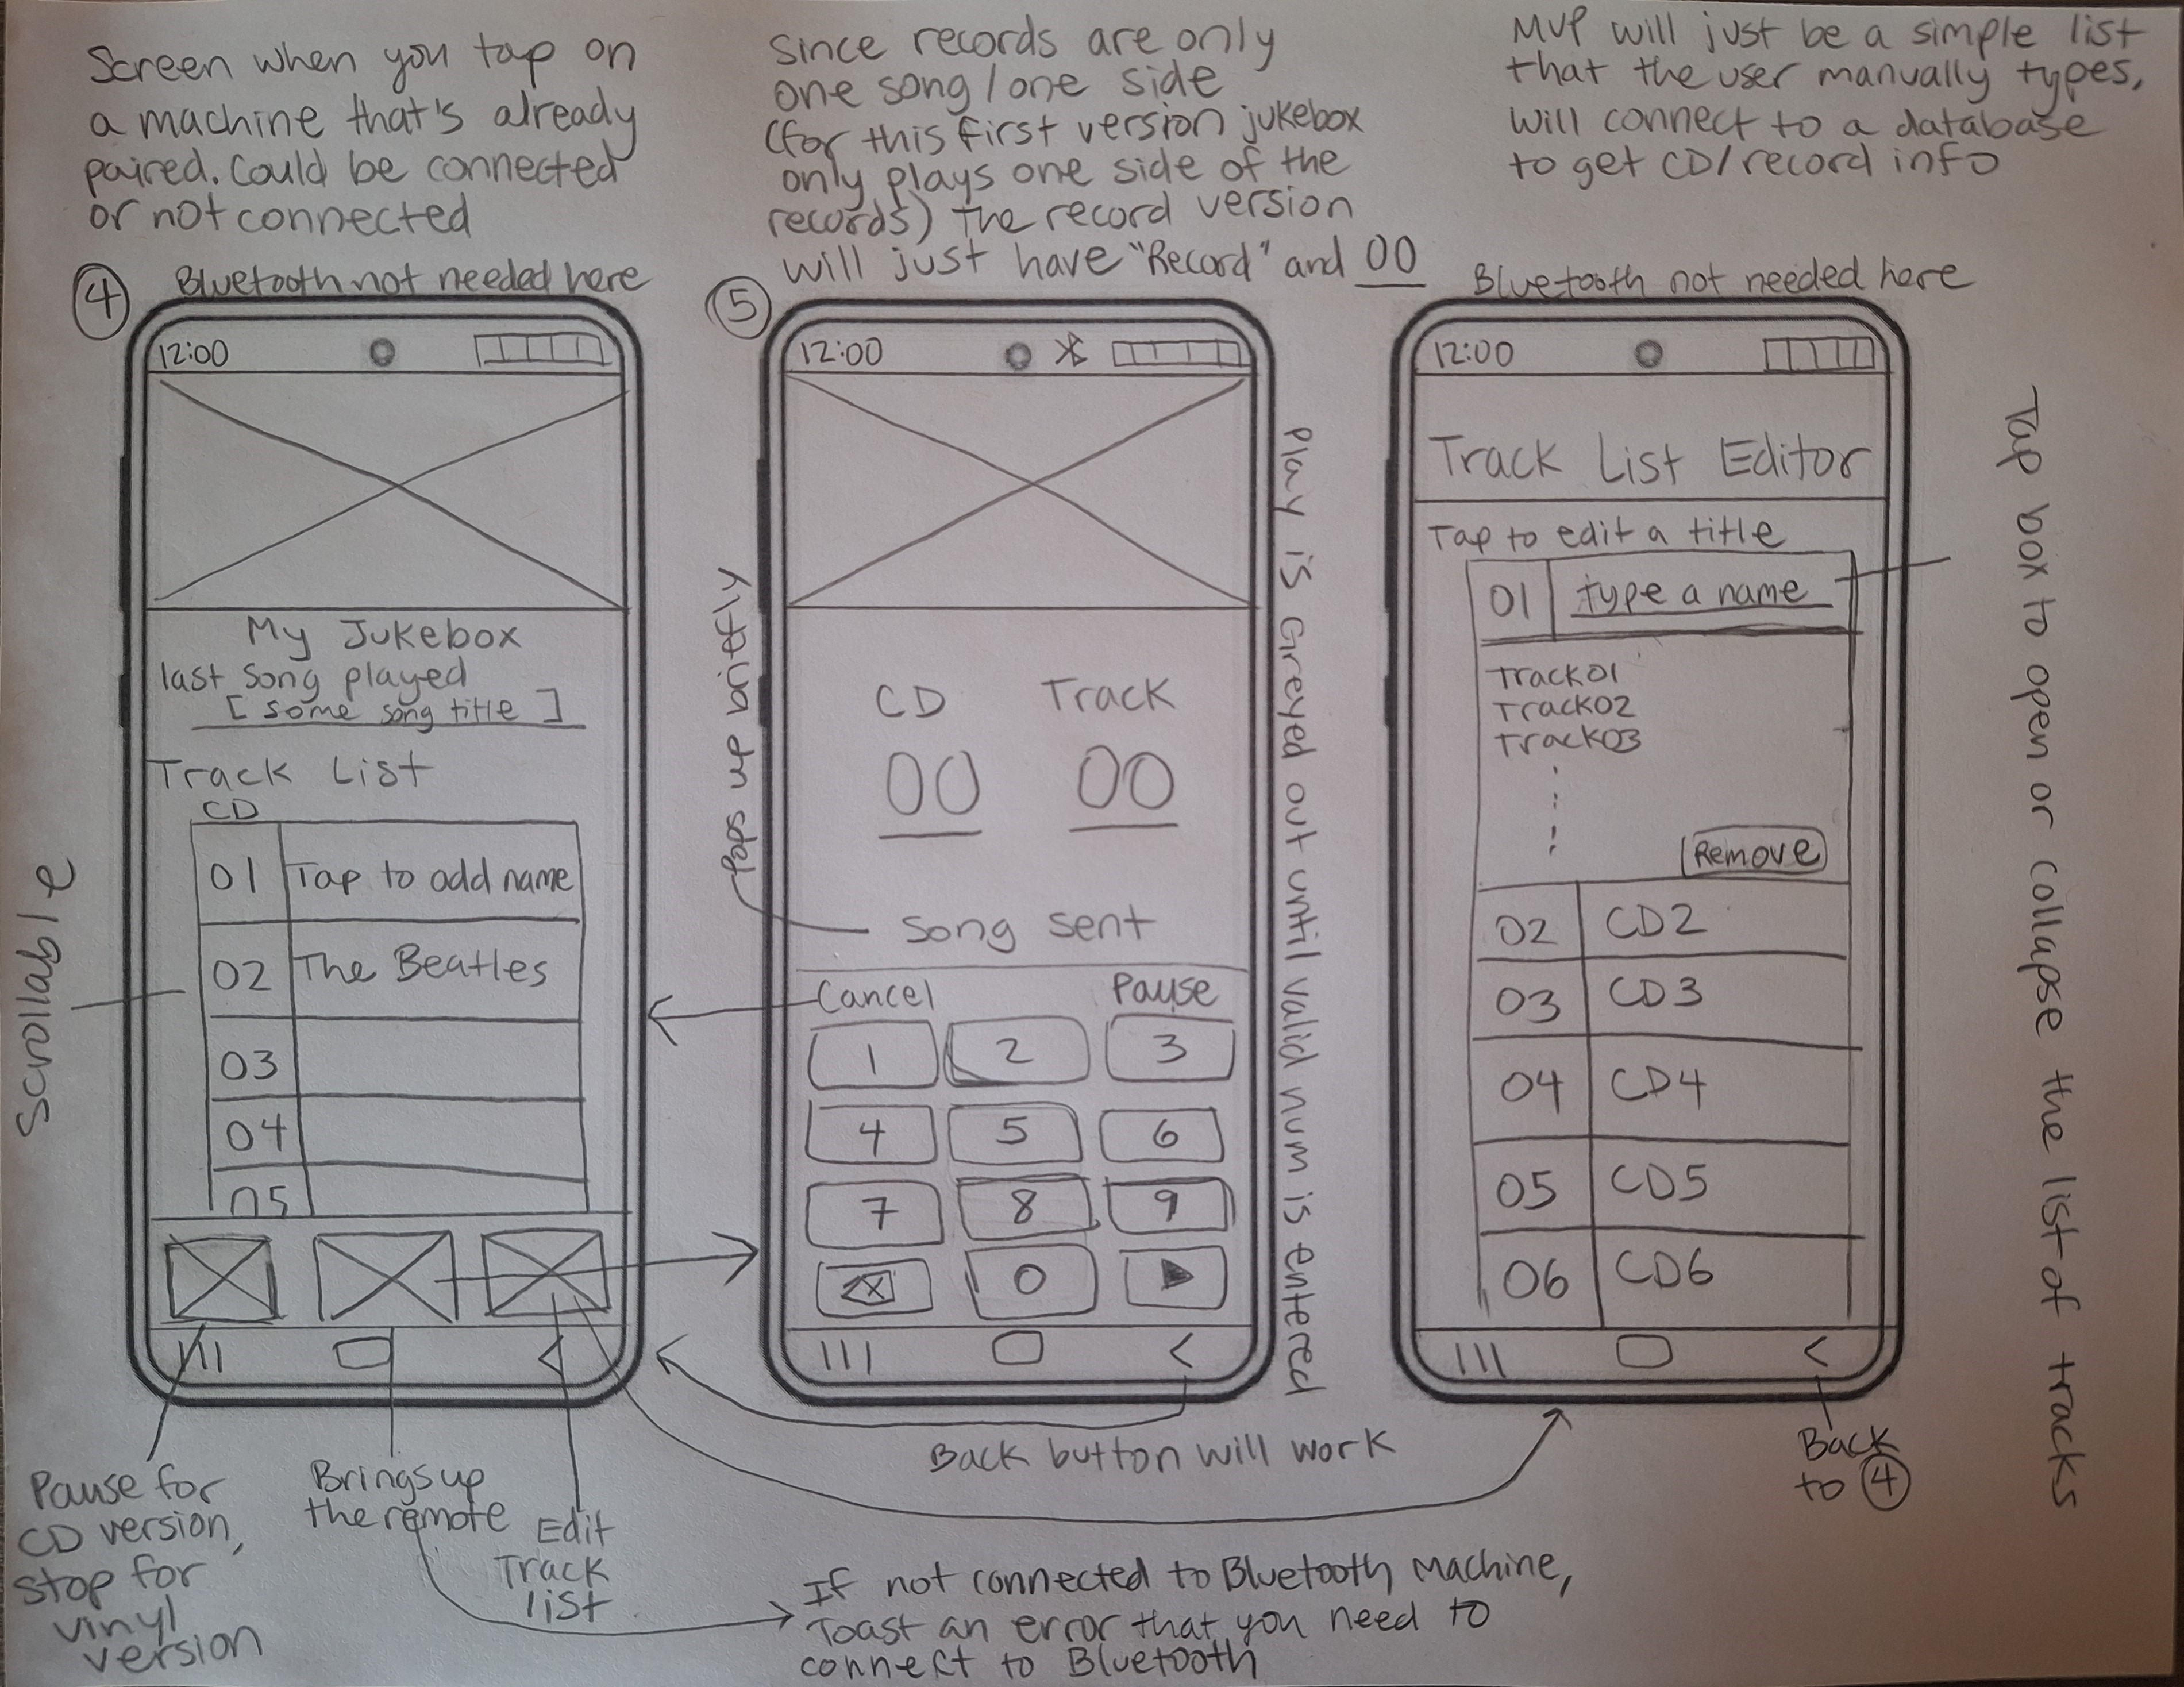 Screen when you tap on
a machine that's already
paired. Could be connected
or not connected
④ Bluetooth not needed here
12:00
My Jukebox
last song played
[ some song title ]
Track List
CD
01 Tap to add name
02 The Beatles
03
04
05
Scrollable
Pause for
CD version,
stop for
vinyl
version
Brings up
the remote
Edit
Track
list
since records are only
one song/one side
(for this first version jukebox
only plays one side of the
records) The record version
will just have "Record" and 00
⑤
12:00
CD Track
00 00
Song sent
Pops up briefly
Cancel Pause
1 2 3
4 5 6
7 8 9
0
Play is Greyed out until valid num is entered
Back button will work
If not connected to Bluetooth Machine,
Toast an error that you need to
connect to Bluetooth
MVP will just be a simple list
that the user manually types,
will connect to a database
to get CD/record info
Bluetooth not needed here
12:00
Track List Editor
Tap to edit a title
01 type a name
Track01
Track02
Track03
Remove
02 CD2
03 CD3
04 CD4
05 CD5
06 CD6
Tap box to open or collapse the list of tracks
Back
to ④